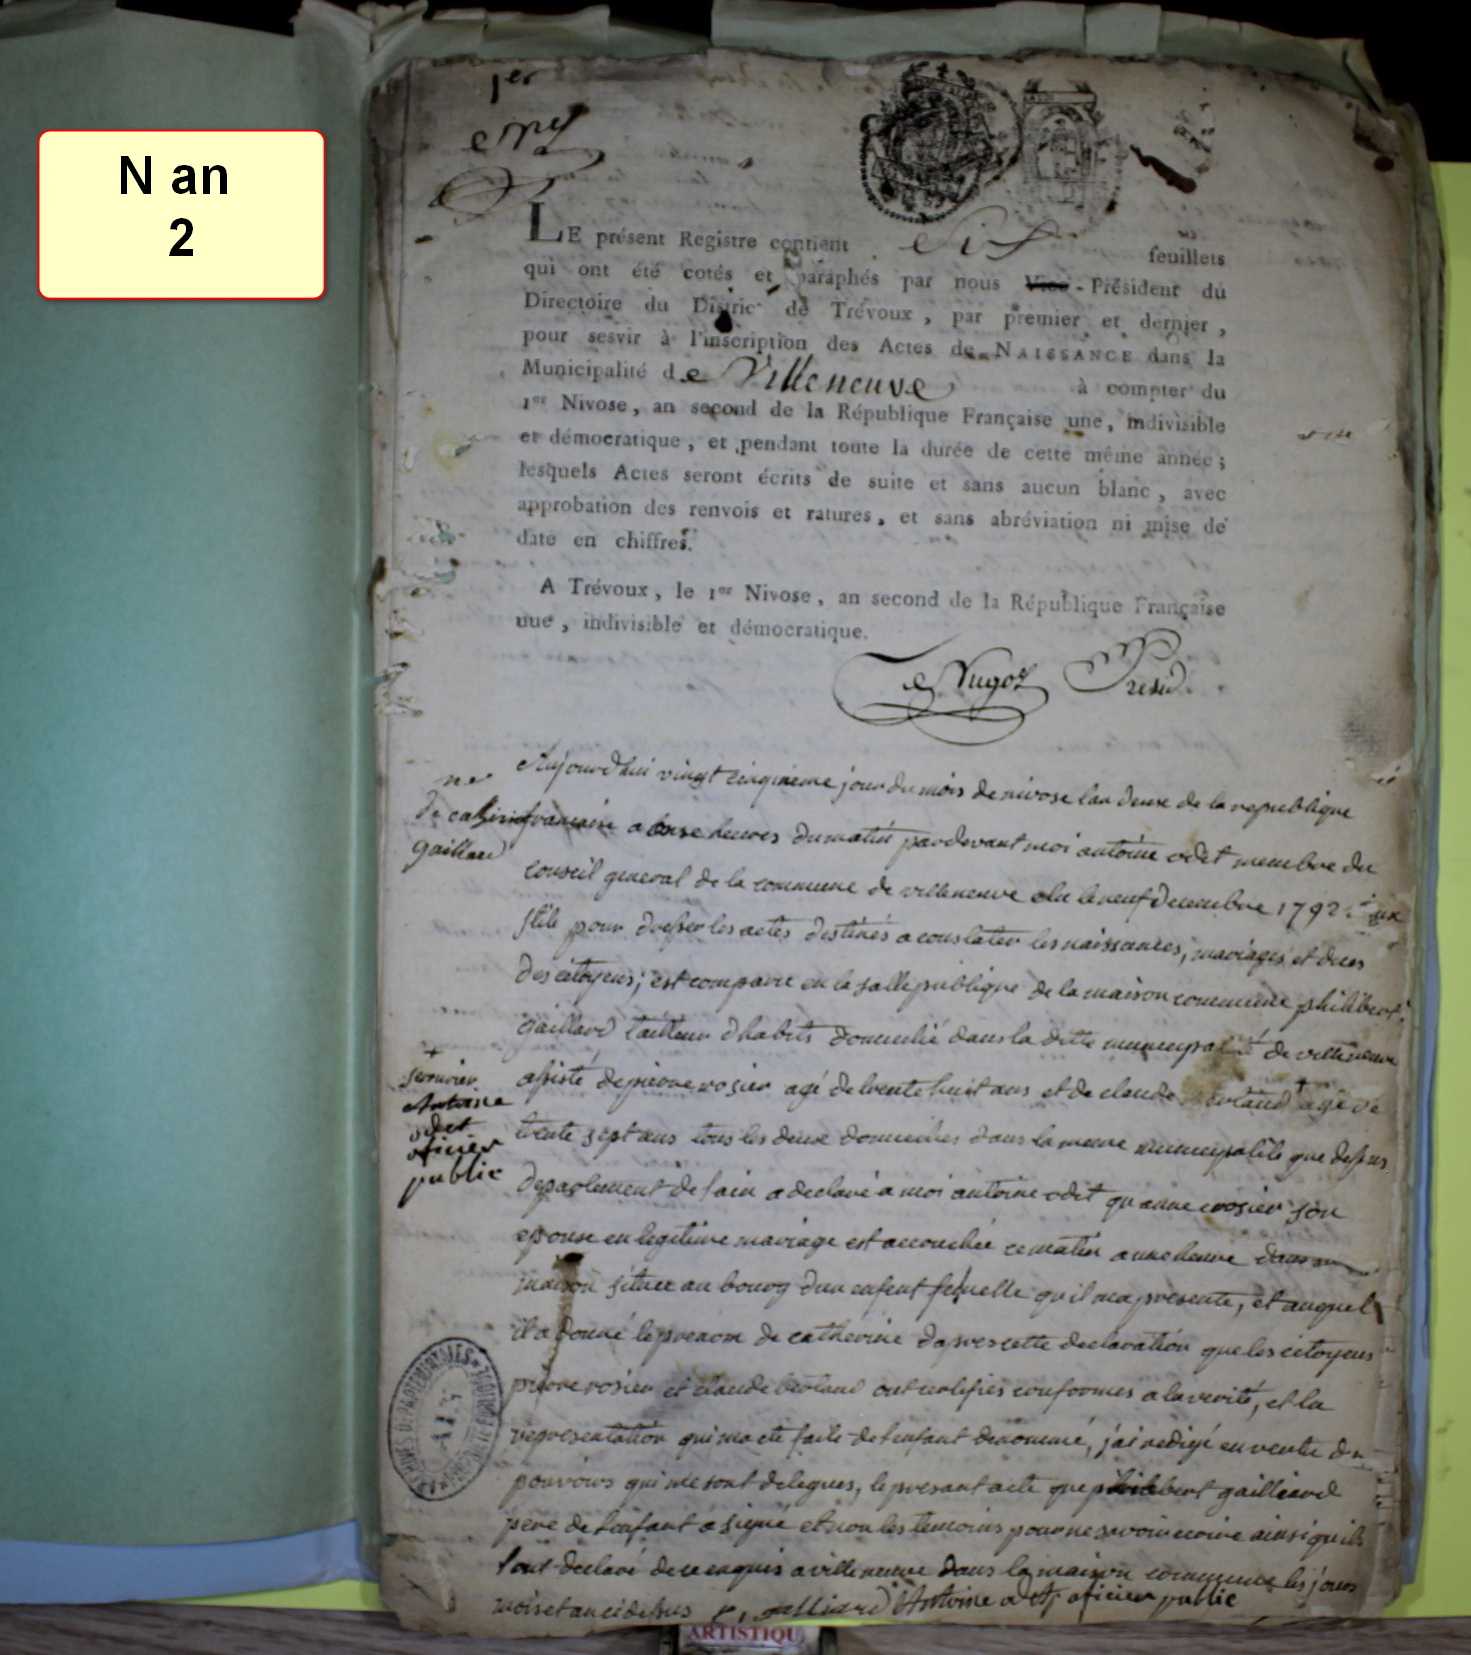 N an
2
1er
LE présent Registre contient Six feuillets
qui ont été cotés et paraphés par nous Vice-Président du
Directoire du District de Trévoux, par premier et dernier,
pour sesvir à l'inscription des Actes de NAISSANCE dans la
Municipalité de Villeneuve à compter du
1er Nivose, an second de la République Française une, indivisible
et démocratique, et pendant toute la durée de cette même année;
lesquels Actes seront écrits de suite et sans aucun blanc, avec
approbation des renvois et ratures, et sans abréviation ni mise de
date en chiffres.
A Trévoux, le 1er Nivose, an second de la République Française
une, indivisible et démocratique.
Aujourdhui vingt cinquieme jour du mois de nivose lan deux de la republique
francaise a onze heures du matin pardevant moi antoine odet membre du
conseil general de la commune de villeneuve elu le neuf decembre 1792 vieux
stile pour dresser les actes destinés a constater les naissances, mariages et deces
des citoyens; est comparu en la salle publique de la maison commune philibert
gaillard tailleur dhabits domicilié dans la ditte municipalité de villeneuve
assisté de pierre rosier agé de trente huit ans et de claude agé de
trente sept ans tous les deux domiciliés dans la meme municipalité que dessus
departement de lain a declaré a moi antoine odet qu anne rosier son
epouse en legitime mariage est accouchée ce matin a une heure dans sa
maison située au bourg dun enfant femelle qu il ma presenté, et auquel
il a donné le prenom de catherine dapres cette declaration que les citoyens
pierre rosier et claude ont certifiés conformes a la verité, et la
representation qui ma eté faite de lenfant denommé, j'ai redigé en vertu des
pouvoirs qui me sont delegues, le present acte que philibert gailliard
pere de lenfant a signé et non les temoins pour ne savoir ecrire ainsi qu ils
lont declaré de ce enquis a villeneuve dans la maison commune les jours
mois et an ci dessus p, galliard Antoine odet oficier public
ne
de catherine
gaillard
Antoine
odet
oficier
public
ARCHIVES DEPARTEMENTALES
AIN
ARTISTIQU